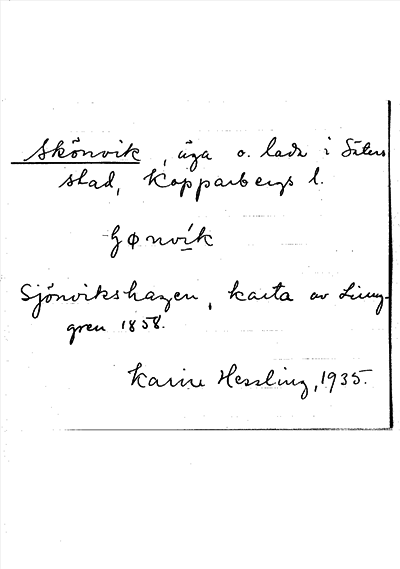 Skönvik, äga o. lada i Säters
stad, Kopparbergs l.
ʃønvik
Sjönvikshagen, karta av Ljung-
gren 1858.
Karin Hessling, 1935.